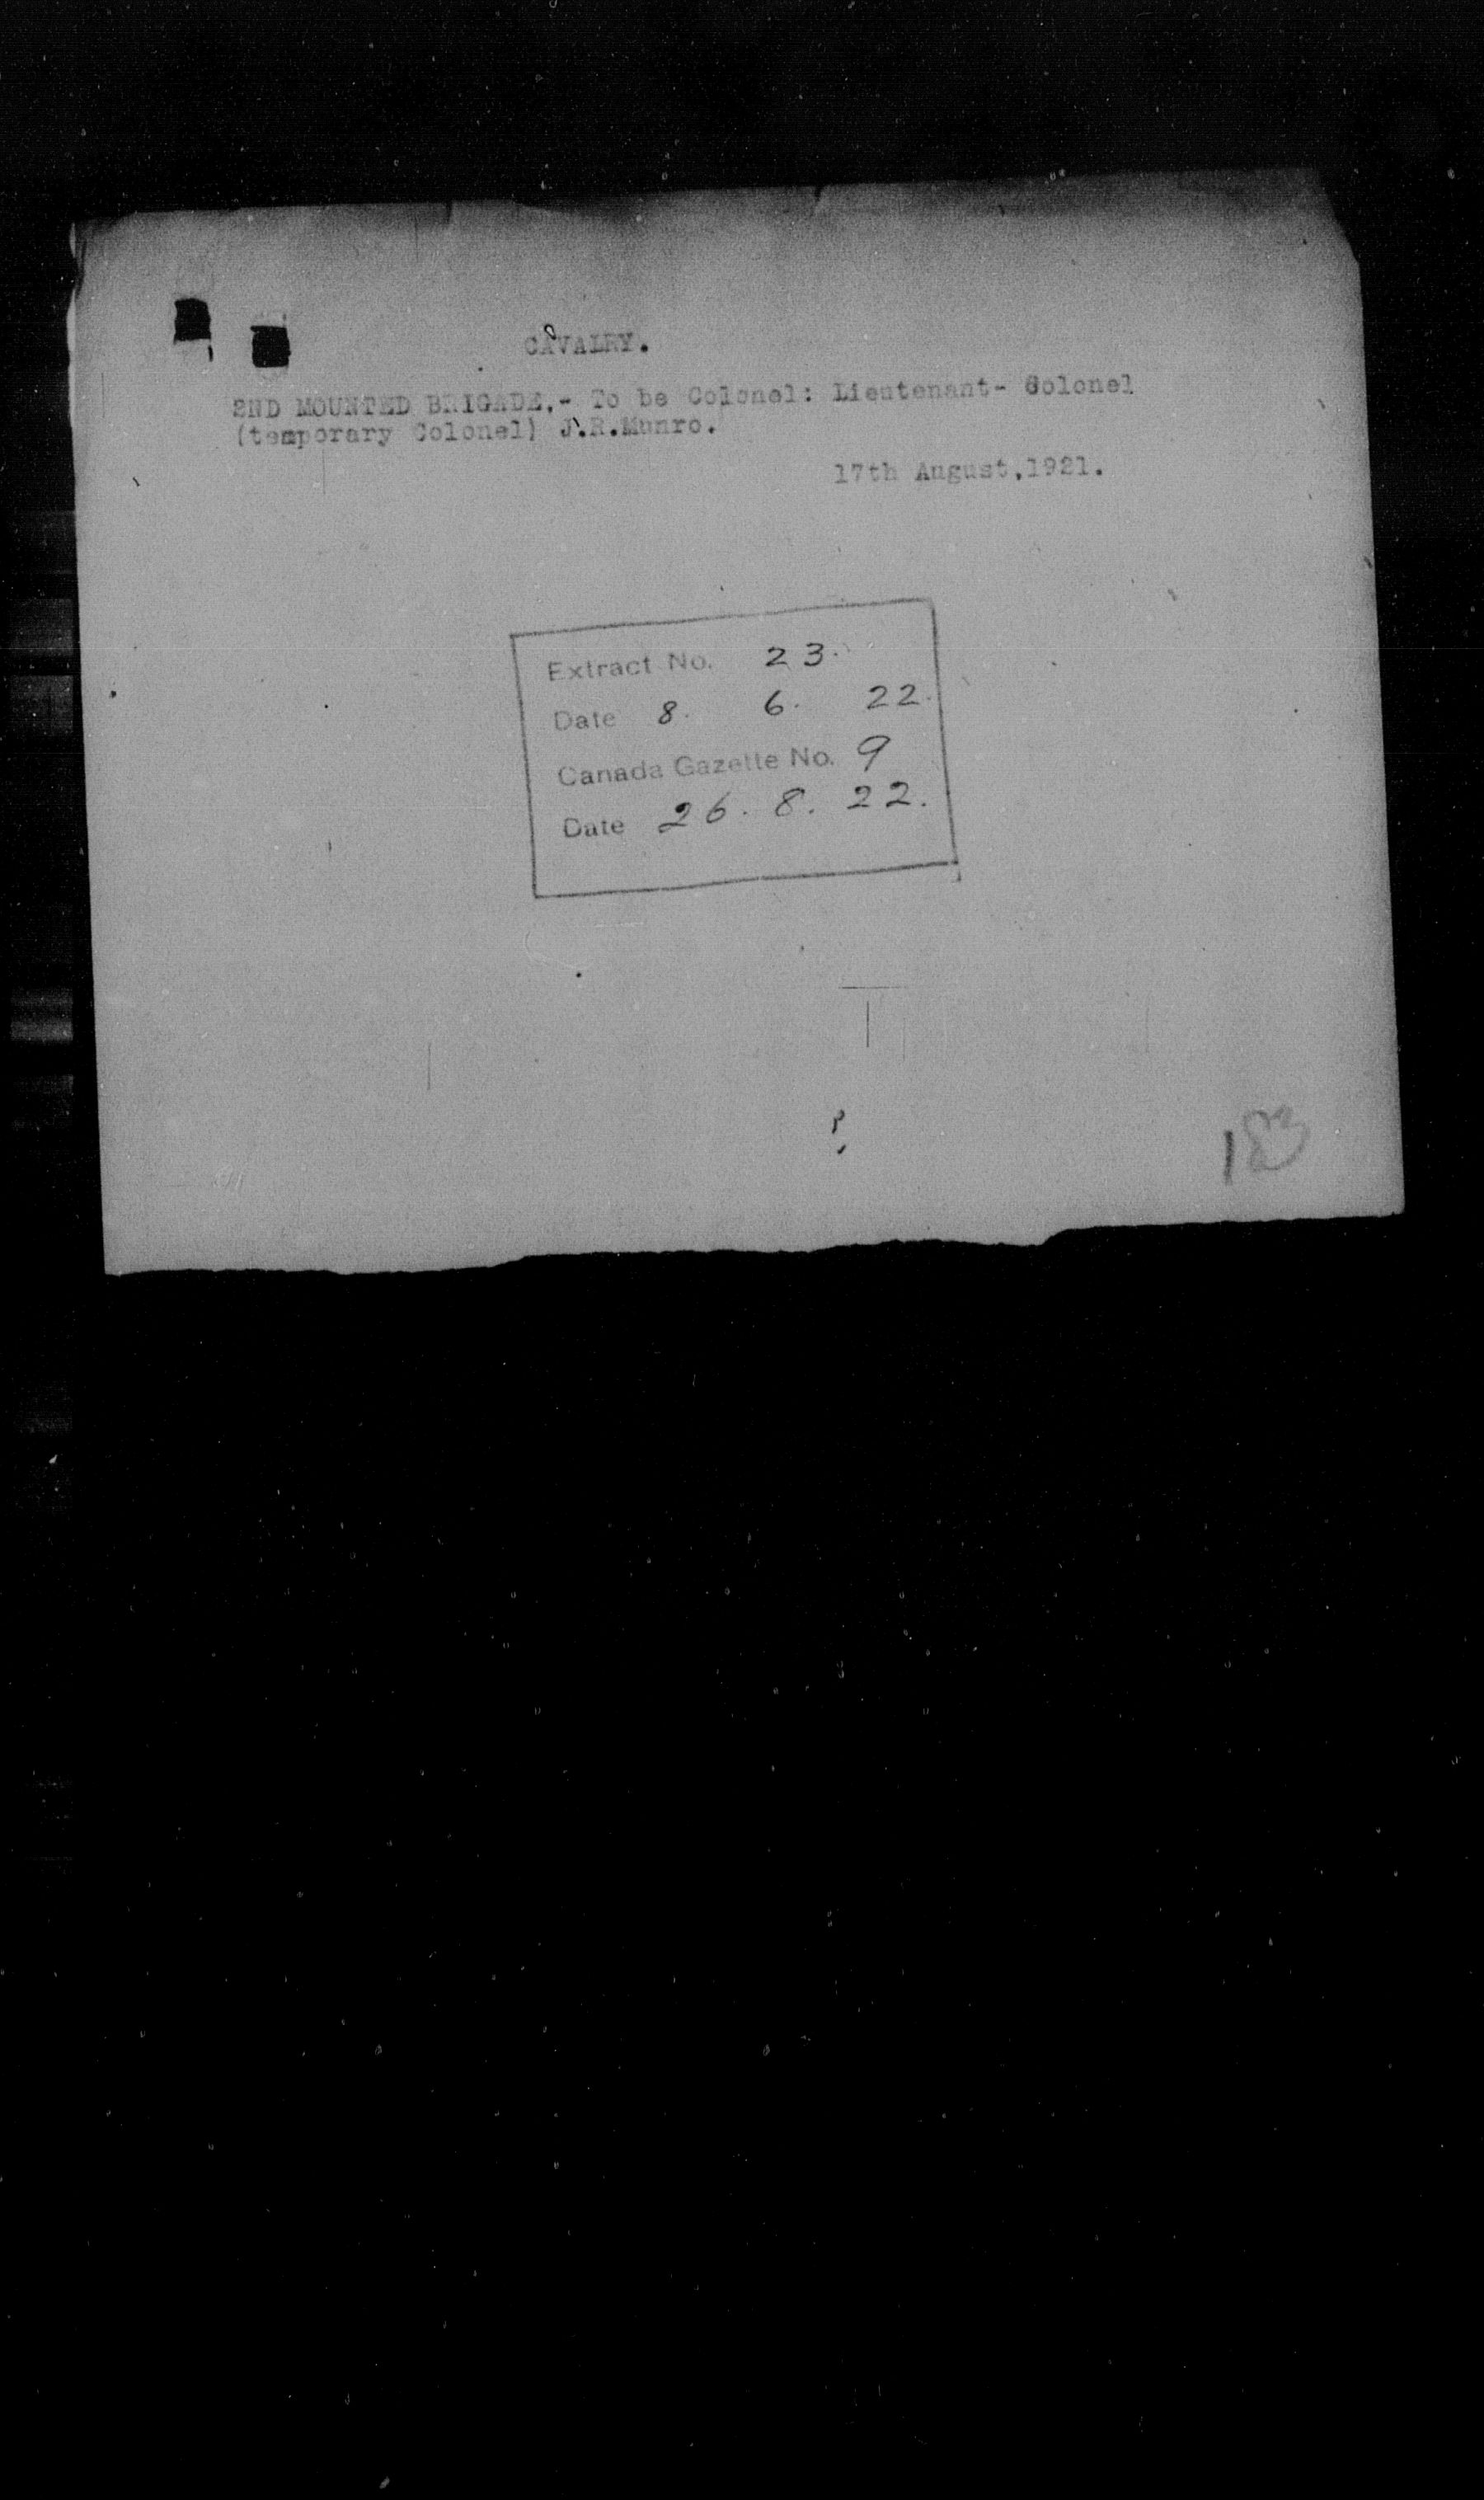 CAVALRY.
2ND MOUNTED BRIGADE.- To be Colonel: Lieutenant- Colonel
(temporary Colonel) J.R.Munro.
17th August,1921.
Extract No. 23.
Date 8. 6. 22.
Canada Gazette No. 9
Date 26. 8. 22.
183